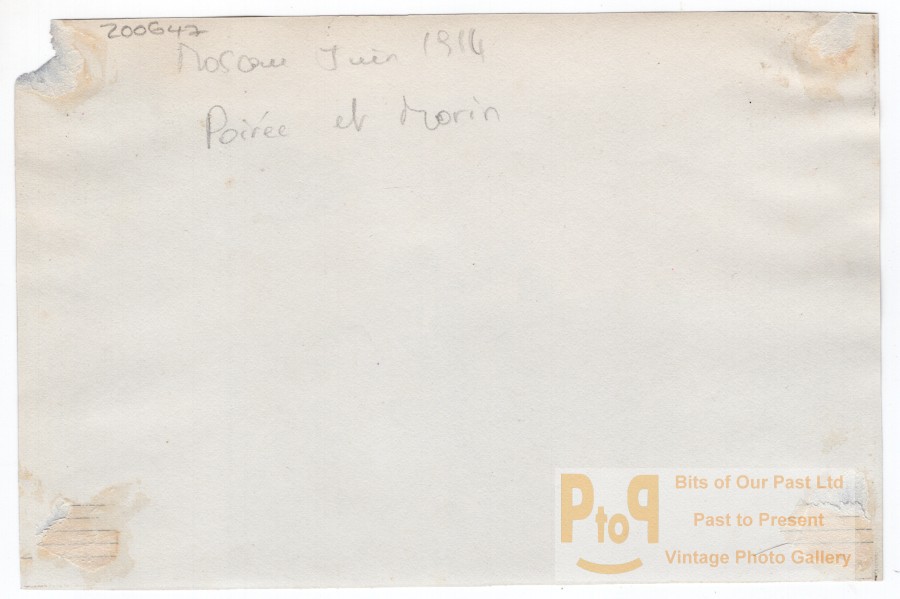 200647
Moscou Juin 1914
Poirée et Morin
PtoP
Bits of Our Past Ltd
Past to Present
Vintage Photo Gallery